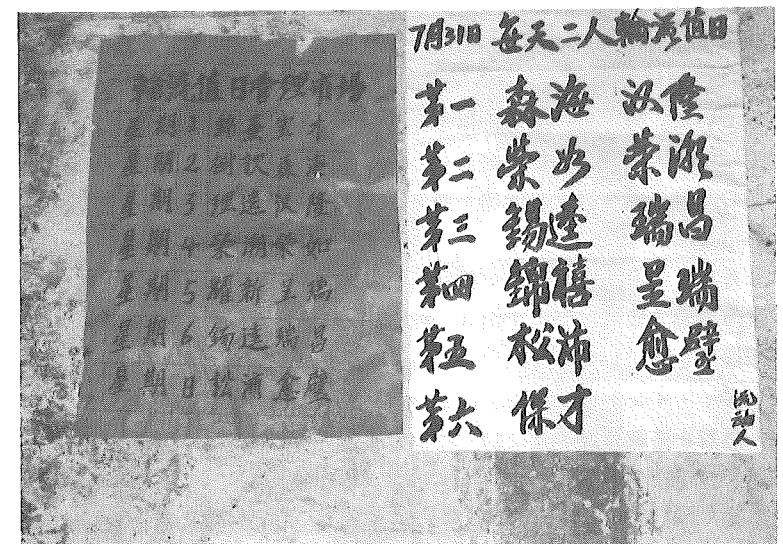 輪流值日管理市場
星期1
星期2樹
星期3理達汉隆
星期4榮瀕榮如
星期5耀新呈瑞
星期6錫達瑞昌
星期日松沛愈壁
7月31日 每天二人輪流值日
第一 森海 汉隆
第二 榮如 榮瀕
第三 錫達 瑞昌
第四 錦禧 呈瑞
第五 松沛 愈壁
第六 保才
流動人